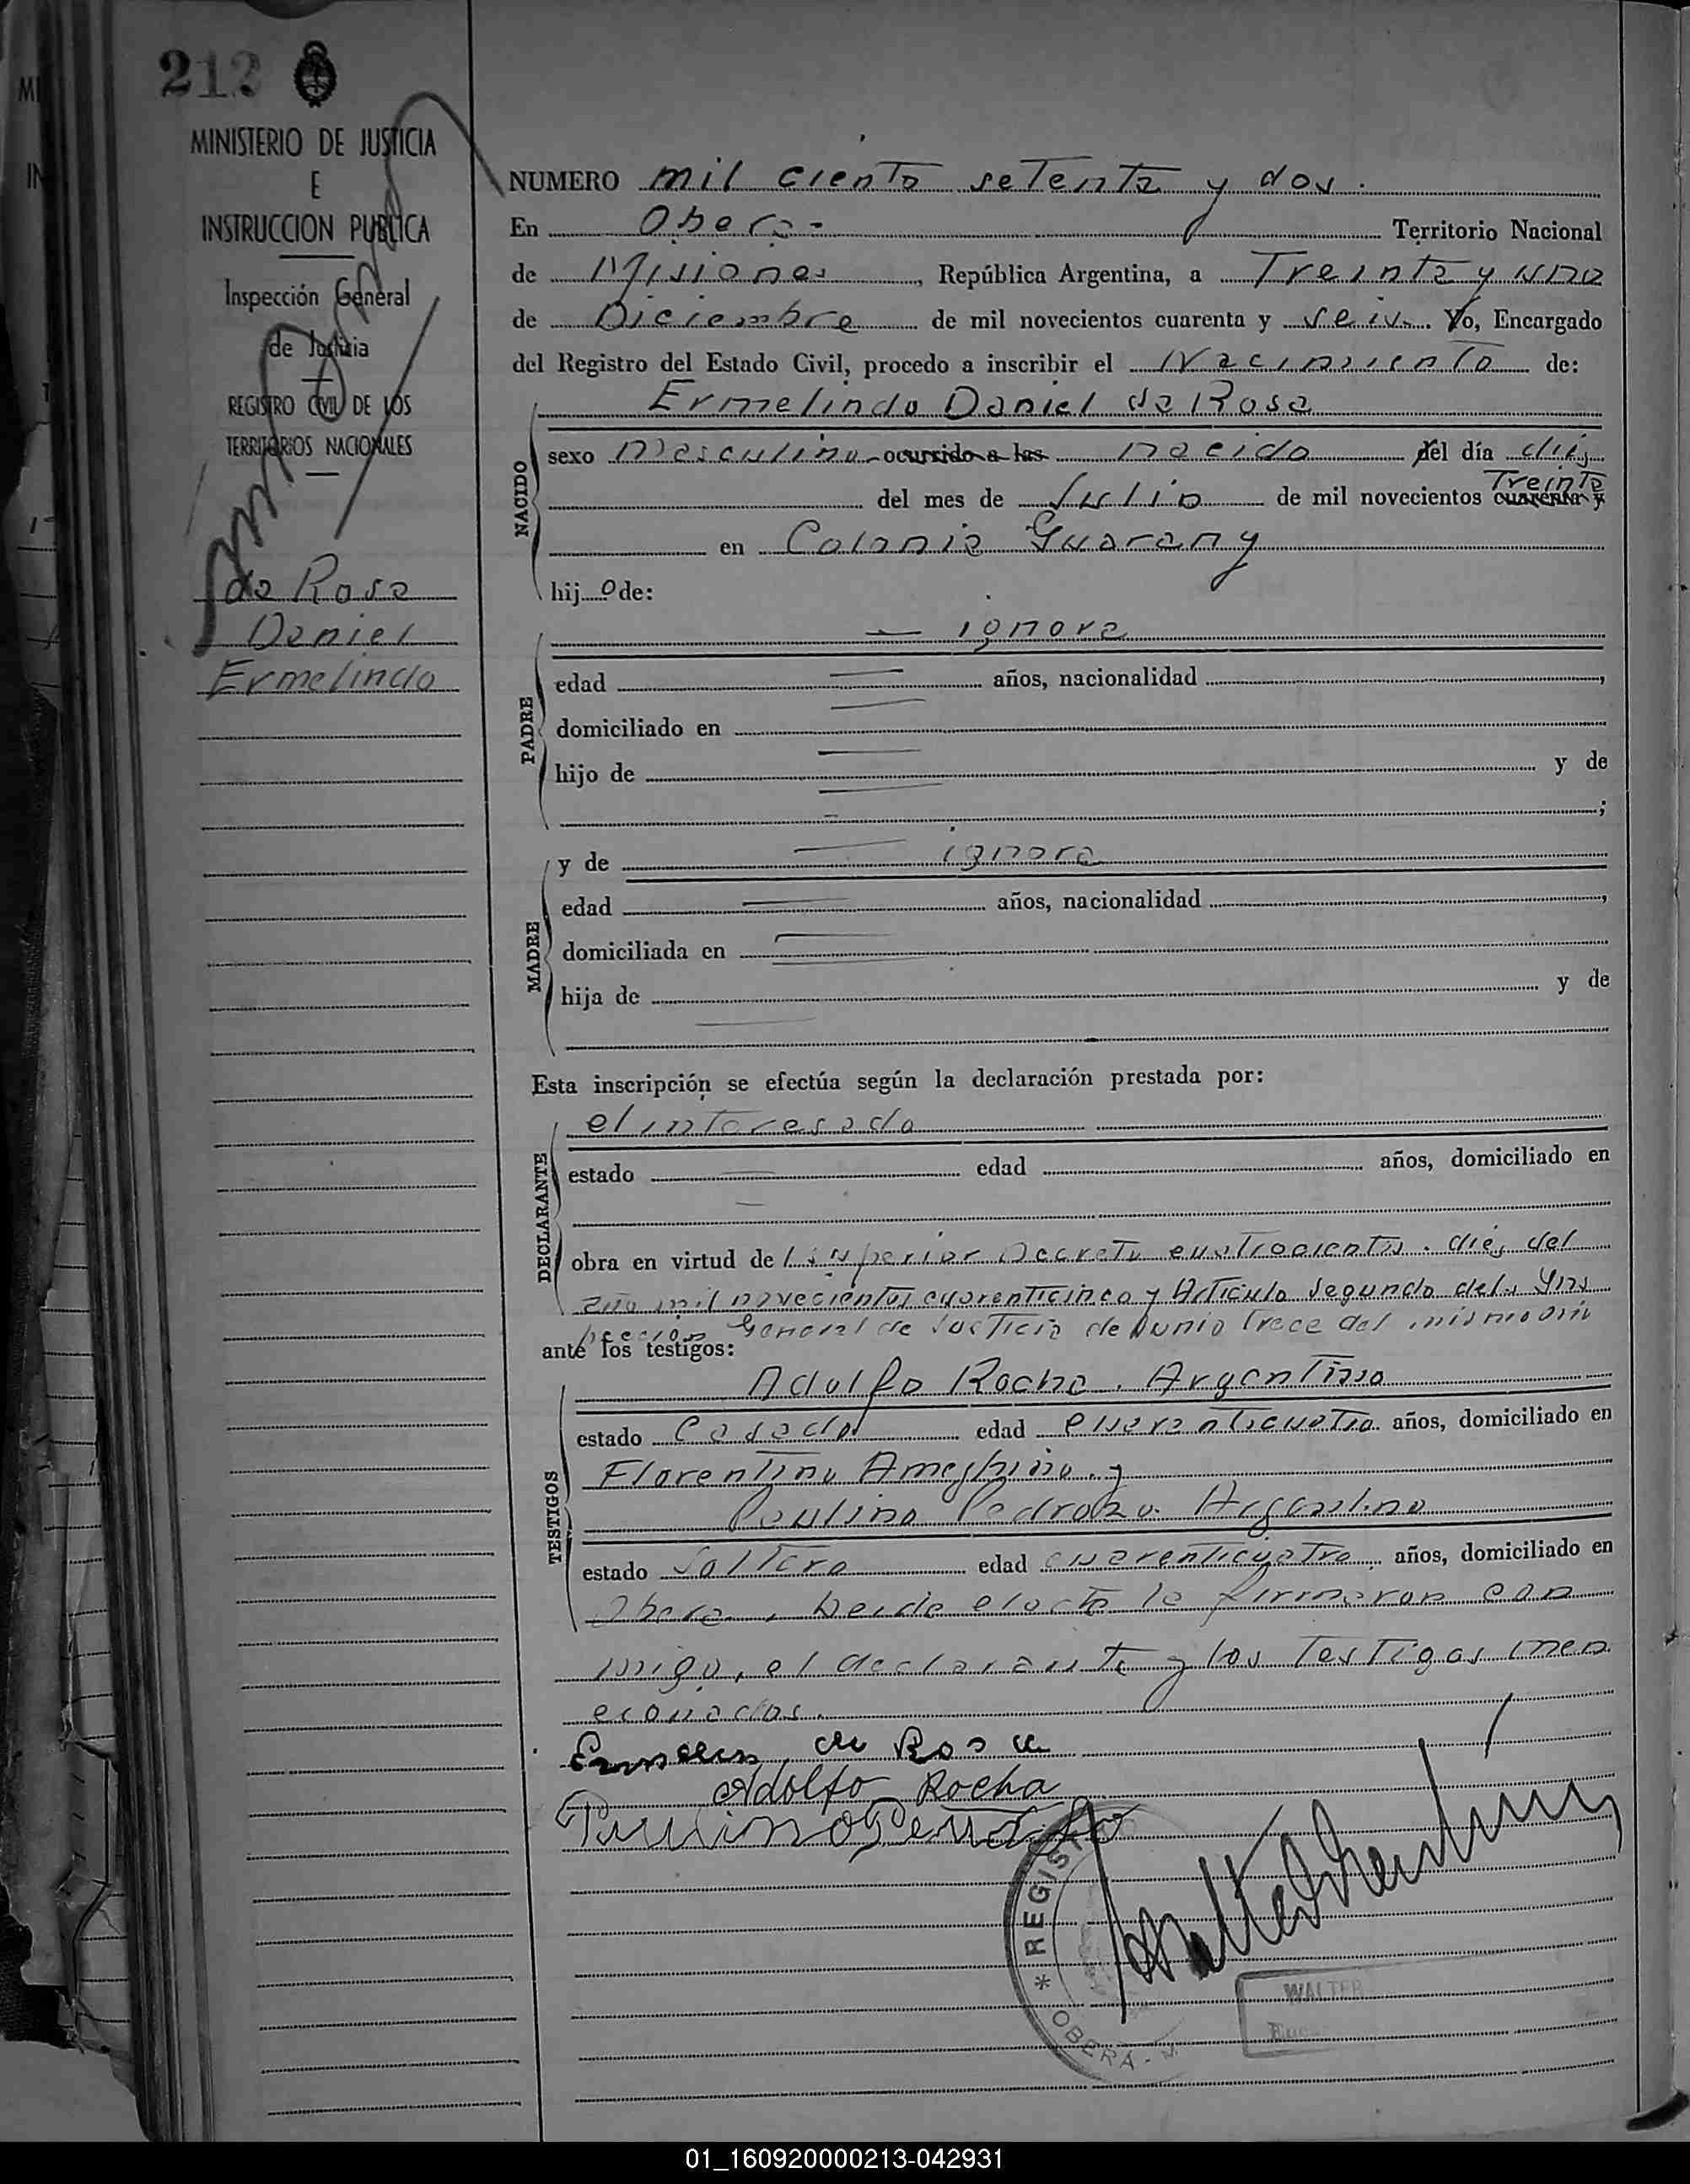 212
MINISTERIO DE JUSTICIA
E
INSTRUCCION PUBLICA
Inspección General
de Justicia
REGISTRO CIVIL DE LOS
TERRITORIOS NACIONALES
da Rosa
Daniel
Ermelindo
NUMERO mil ciento setenta y dos.
En Obera- Territorio Nacional
de Misiones, República Argentina, a Treinta y uno
de Diciembre de mil novecientos cuarenta y seis. Yo, Encargado
del Registro del Estado Civil, procedo a inscribir el Nacimiento de:
Ermelindo Daniel da Rosa
NACIDO
sexo Masculino ocurrido a las nacido del día diez
del mes de Julio de mil novecientos cuarenta y Treinta
en Colonia Guarany
hijo de:
PADRE
— ignora
edad años, nacionalidad ,
domiciliado en
hijo de y de
;
MADRE
y de — ignora
edad años, nacionalidad ,
domiciliada en
hija de y de
Esta inscripción se efectúa según la declaración prestada por:
DECLARANTE
el interesado
estado — edad años, domiciliado en
—
obra en virtud de Superior Decreto cuatrocientos diez del
año mil novecientos cuarenticinco y Articulo Segundo de la Yns
peccion General de Justicia de Junio trece del mismo
ante los testigos:
TESTIGOS
Adolfo Rocha. Argentino
estado Casado edad cuarenticuatro años, domiciliado en
Florentino Ameghino. y
Paulino Pedrozo. Argentino
estado Soltero edad cuarenticuatro años, domiciliado en
Obera. Leida el acta la firmaron con
migo, el declarante y los Testigos men
cionados.
da Rosa
Adolfo Rocha
Paulino
* REGIST
OBERA -
WALTER
01_160920000213-042931